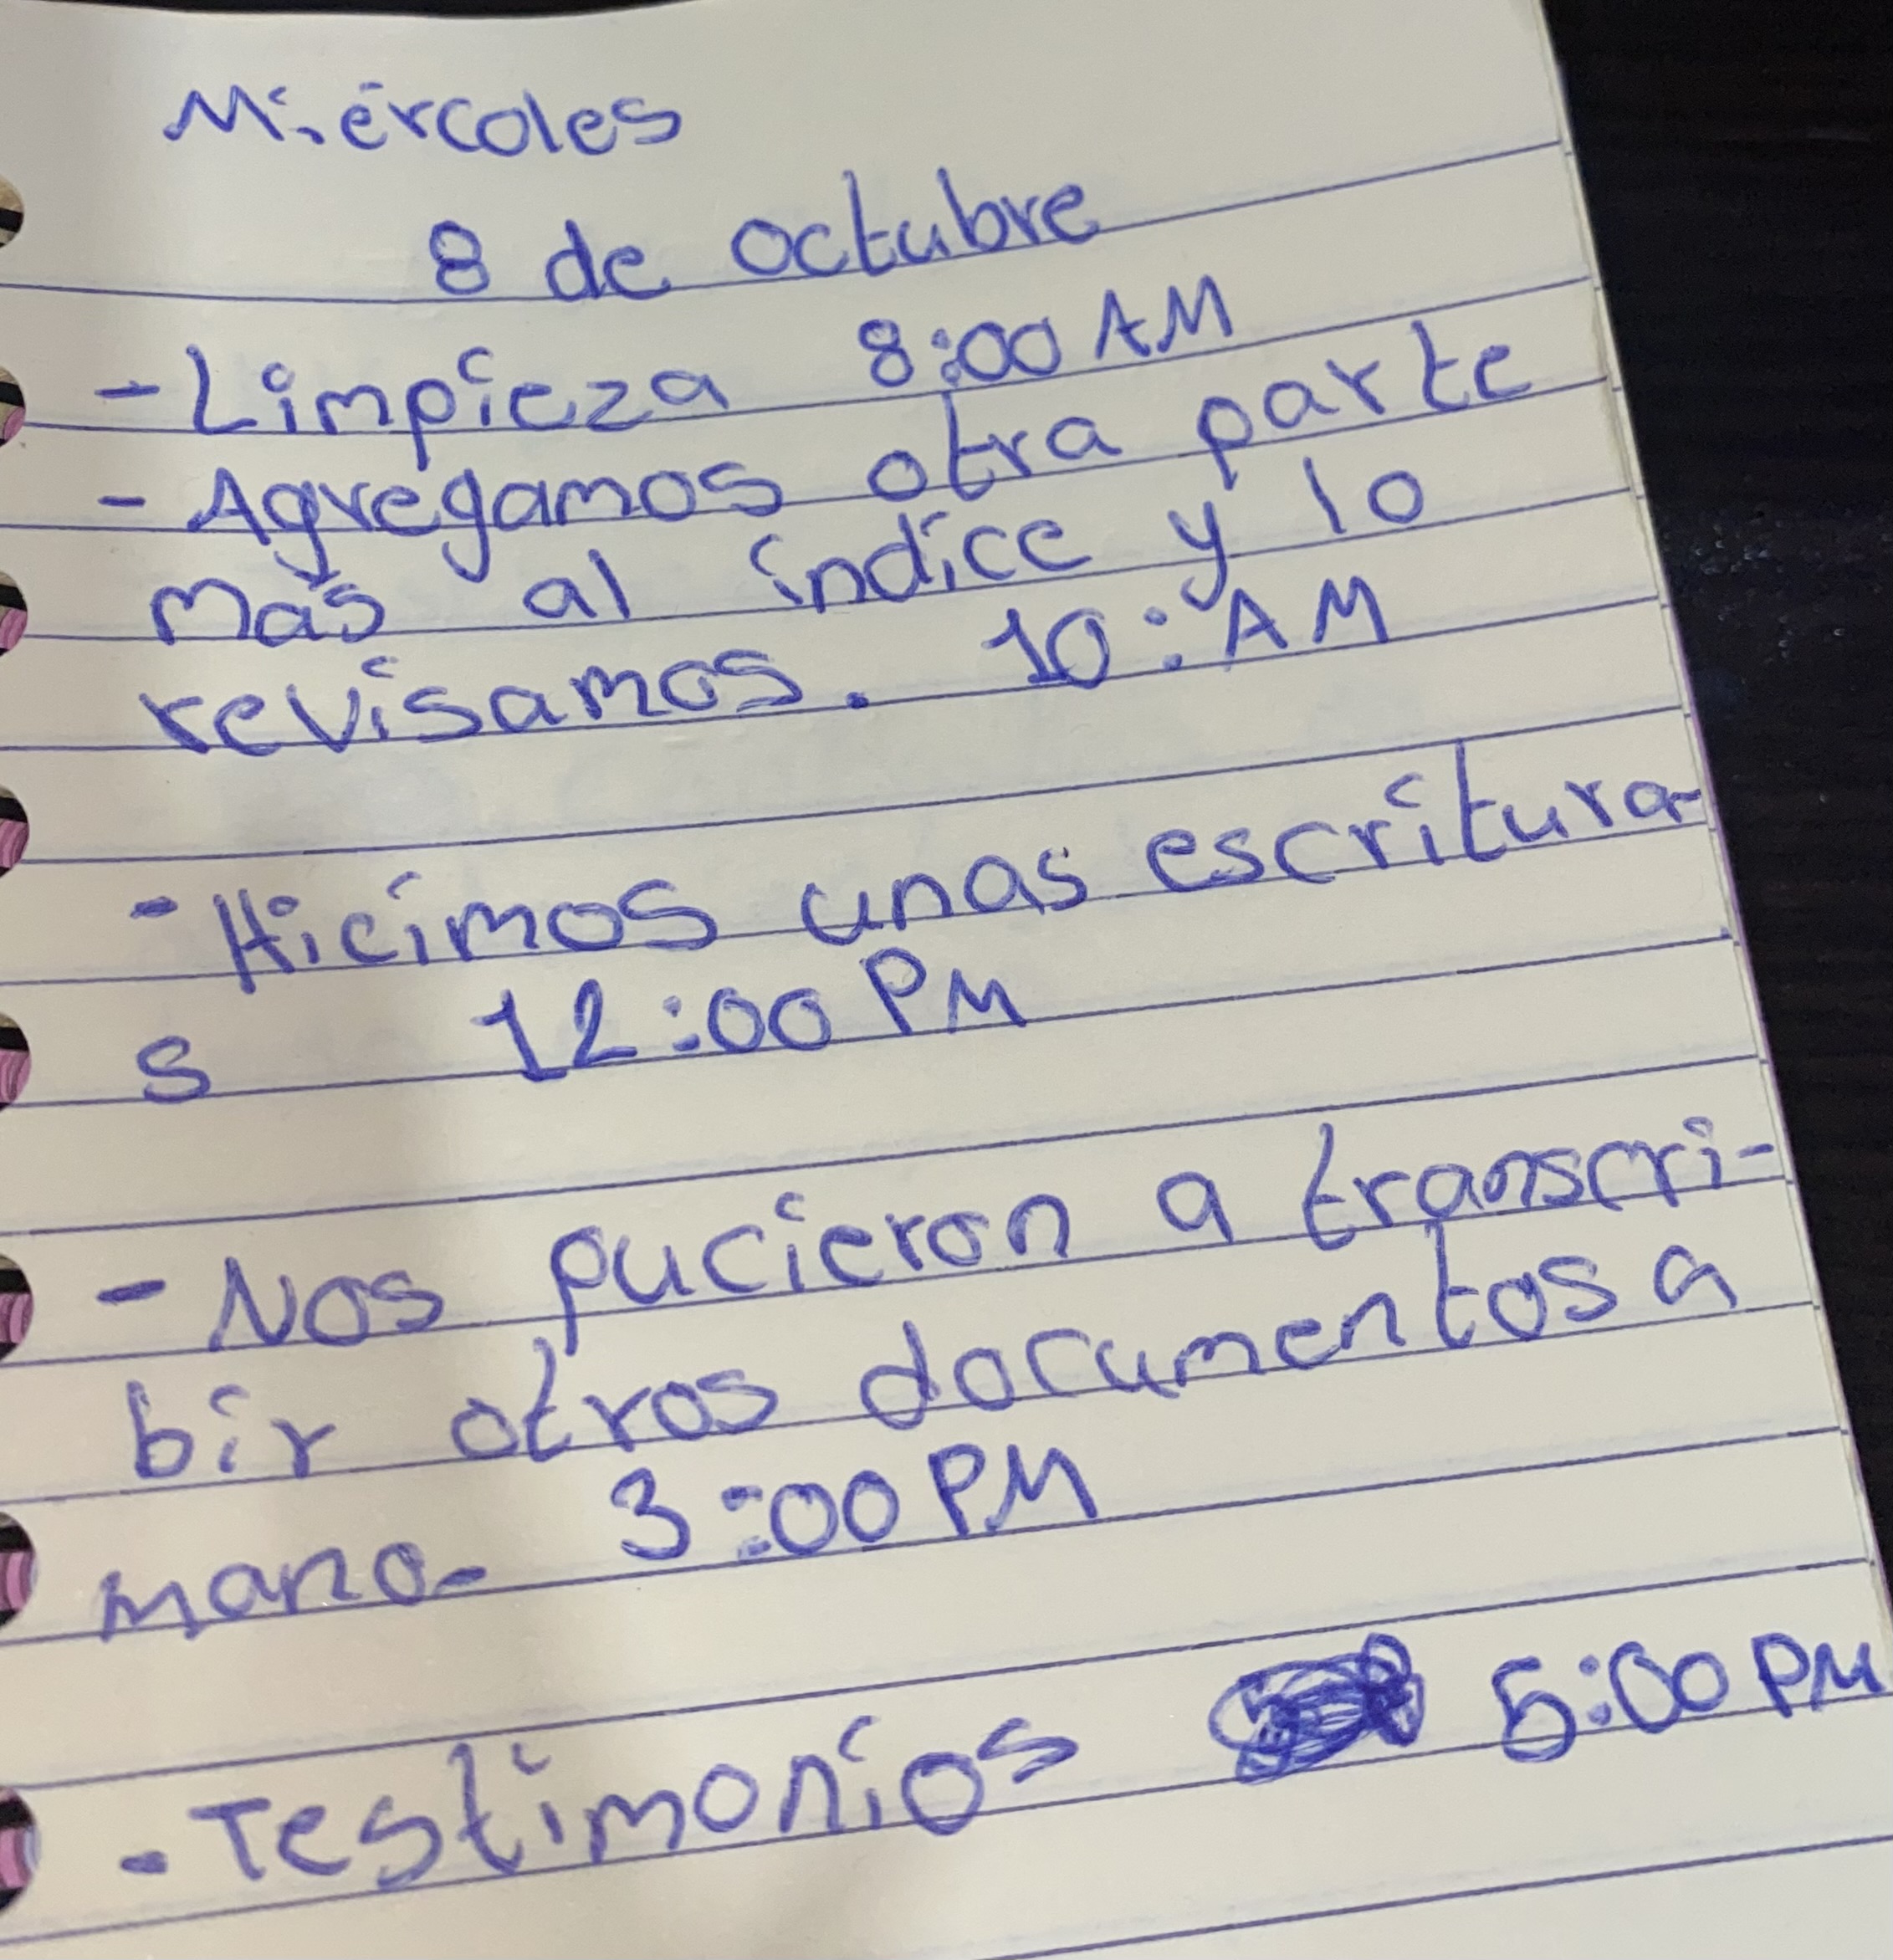 Miércoles
8 de octubre
- Limpieza 8:00 AM
- Agregamos otra parte
mas al indice y lo
revisamos. 10: AM
- Hicimos unas escritura-
s 12:00 PM
- Nos pucieron a transcri-
bir otros documentos a
mano- 3:00 PM
- Testimonios 5:00 PM